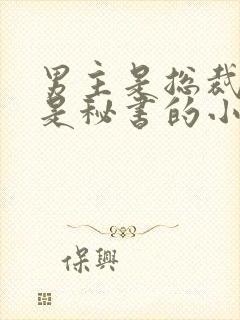 男主是总裁
是秘书的小
保興